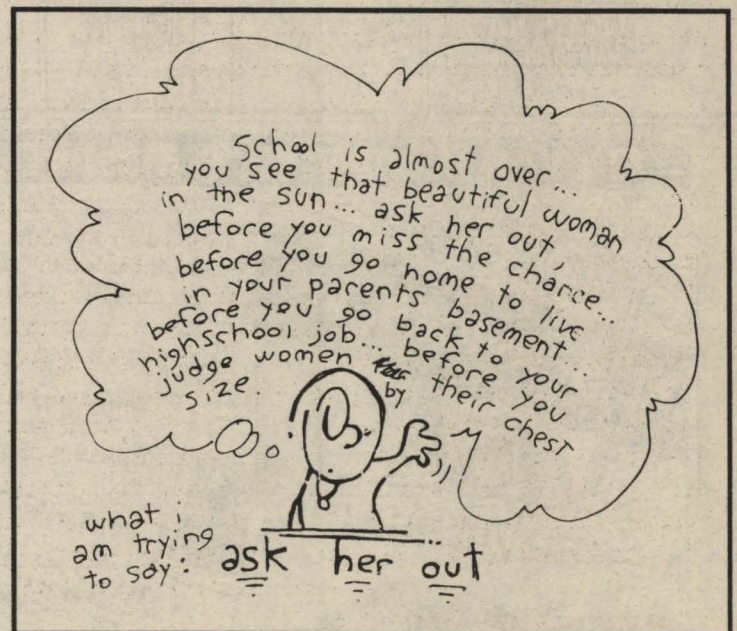 School is almost over...
you see that beautiful woman
in the sun... ask her out,
before you miss the chance...
before you go home to live
in your parents basement...
before you go back to your
highschool job... before you
judge women by their chest
size
what i
am trying
to say:
ask her out